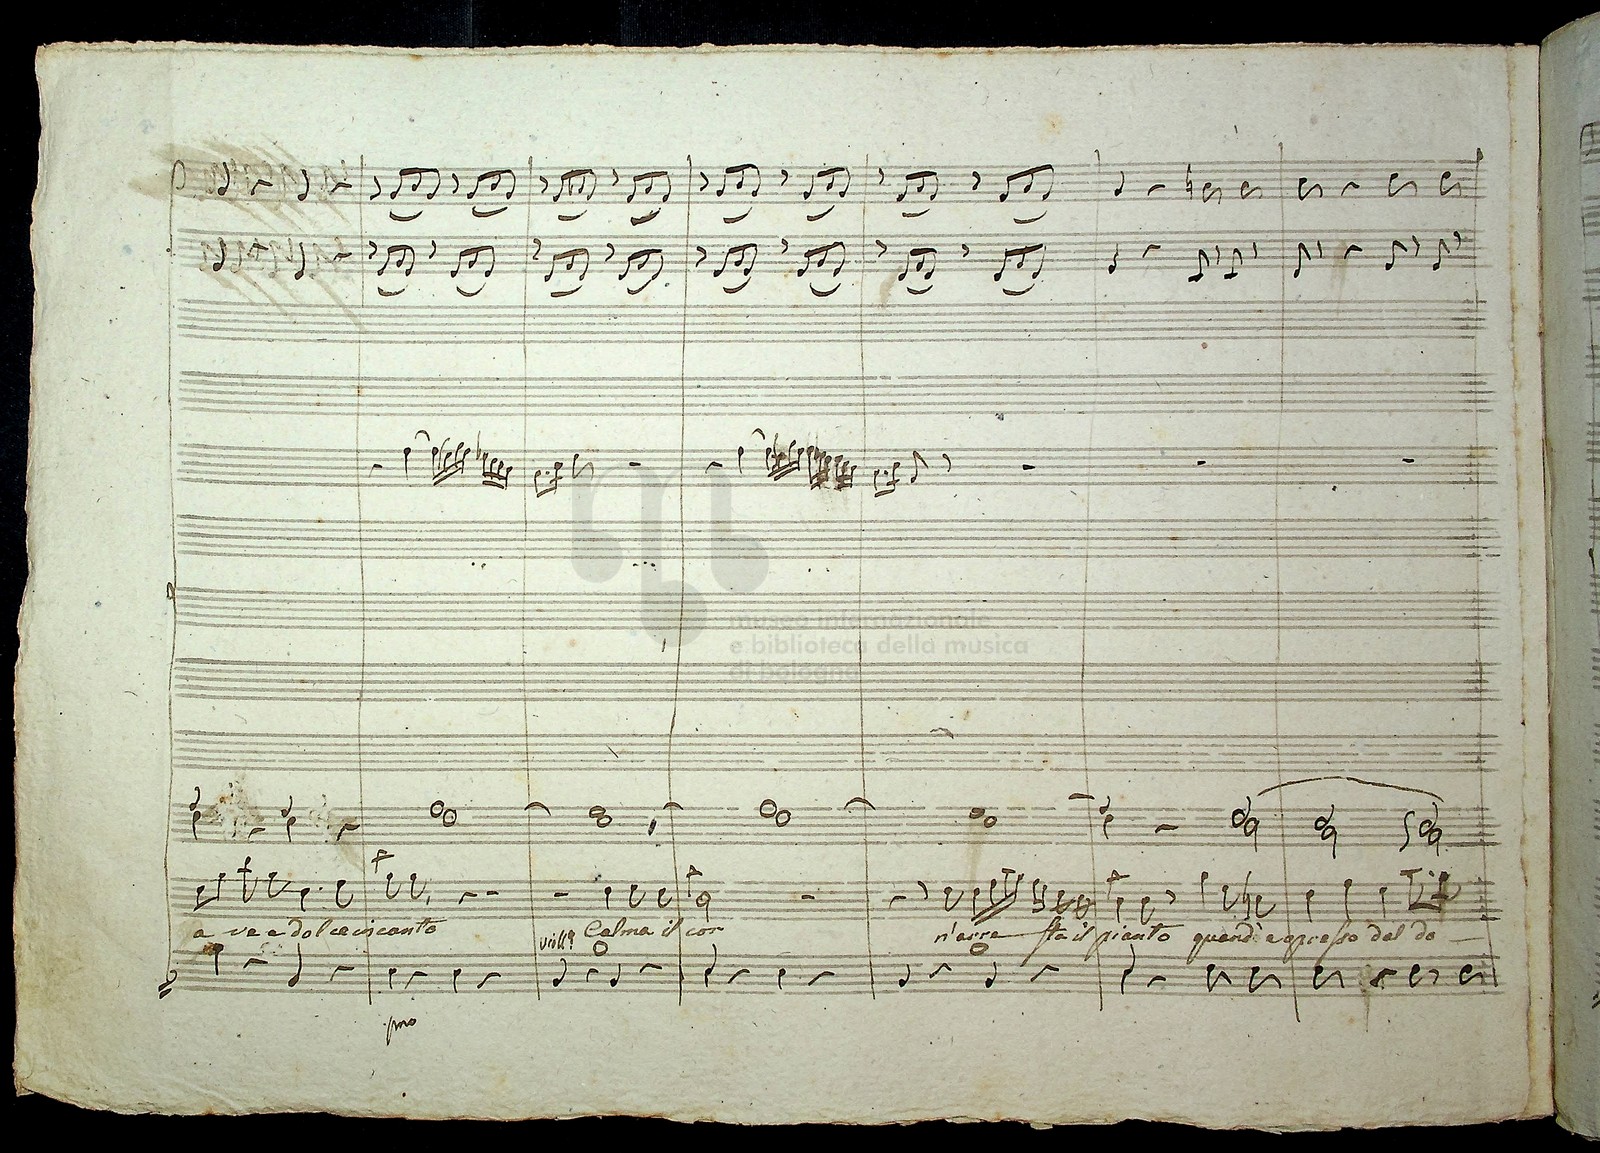 museo internazionale
e biblioteca della musica
di bologna
a ve e dolce incanto Calma il cor n'arre sta il pianto quand'è opresso dal do